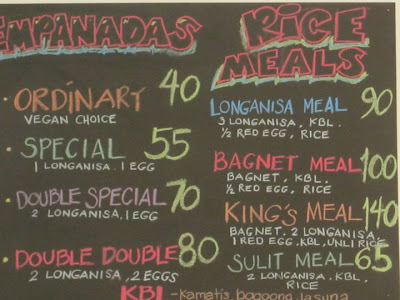 EMPANADAS
· ORDINARY 40
VEGAN CHOICE
· SPECIAL 55
1 LONGANISA, 1 EGG
· DOUBLE SPECIAL 70
2 LONGANISA, 1 EGG
· DOUBLE DOUBLE 80
2 LONGANISA, 2 EGGS
RICE
MEALS
LONGANISA MEAL 90
3 LONGANISA, KBL,
½ RED EGG, RICE
BAGNET MEAL 100
BAGNET, KBL,
½ RED EGG, RICE
KING'S MEAL 140
BAGNET, 2 LONGANISA,
1 RED EGG, KBL, UNLI RICE
SULIT MEAL 65
2 LONGANISA, KBL
RICE
KBL - Kamatis bagoong lasuna